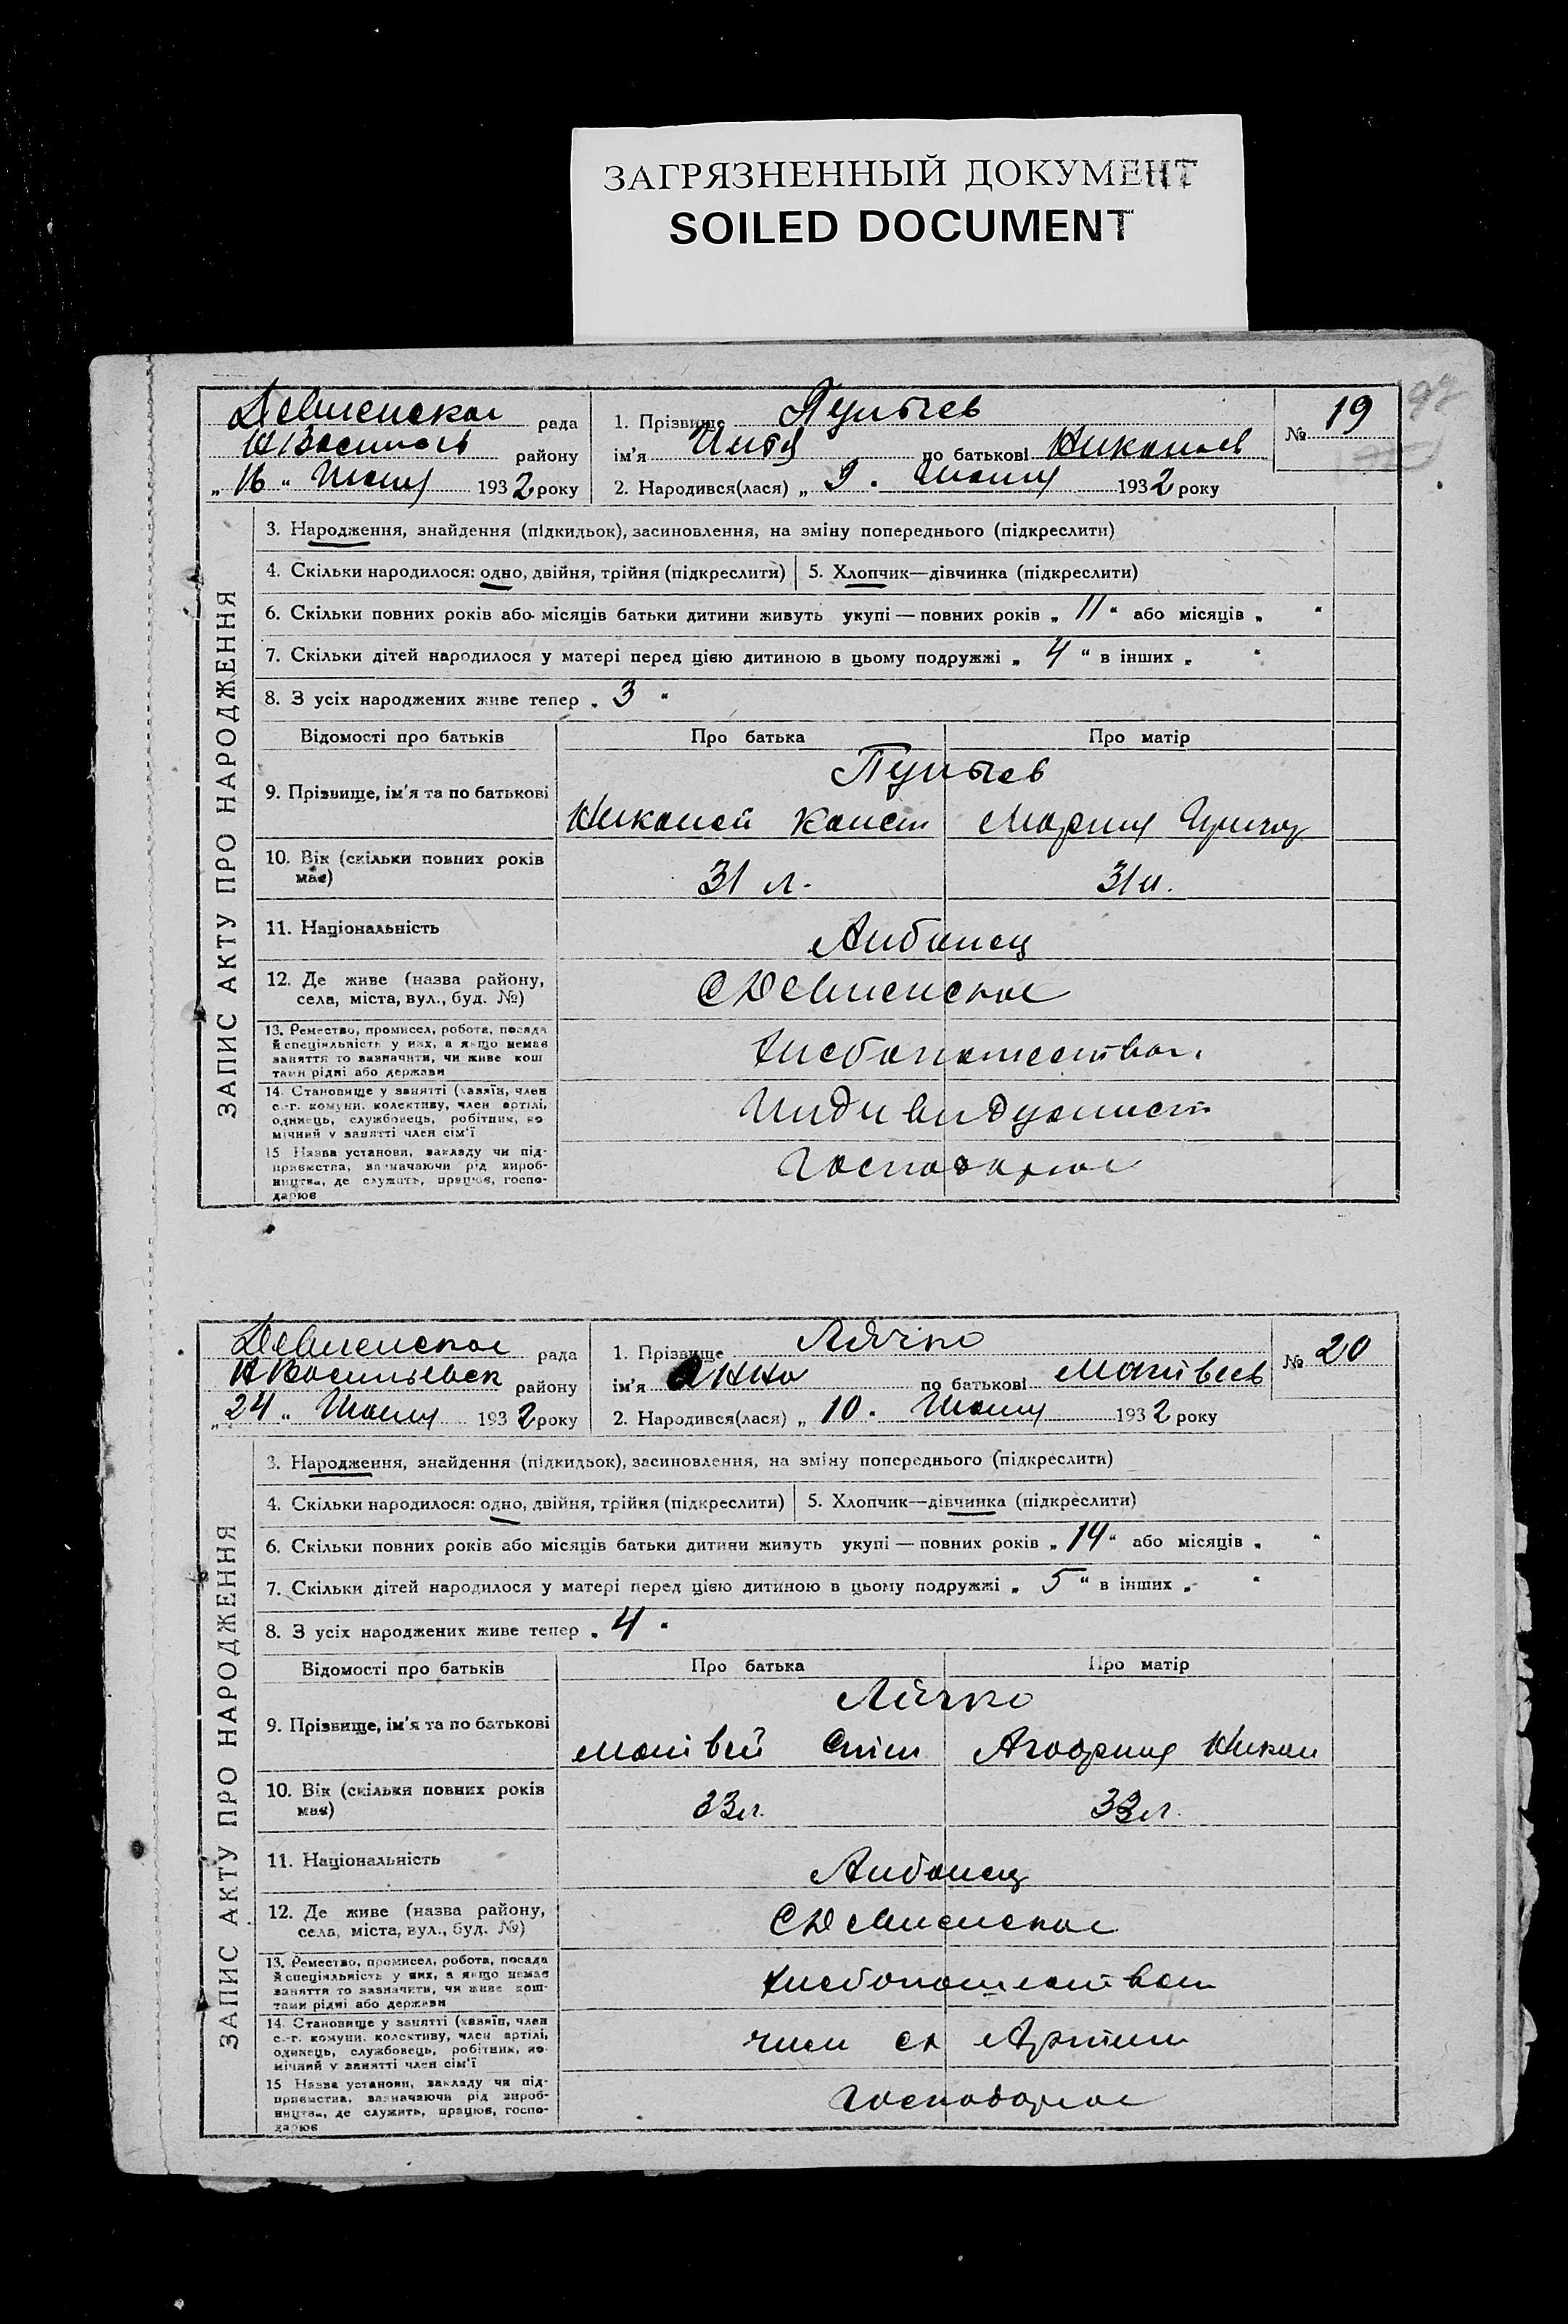 ЗАГРЯЗНЕННЫЙ ДОКУМЕНТ
SOILED DOCUMENT
Девненское рада
района району
„16“ 1932 року
1. Прізвище Пультев
ім'я Илья по батькові Николаев
2. Народився(лася) „9“ 1932 року
№ 19
ЗАПИС АКТУ ПРО НАРОДЖЕННЯ
3. Народження, знайдення (підкидьок), засиновлення, на зміну попереднього (підкреслити)
4. Скільки народилося: одно, двійня, трійня (підкреслити)
5. Хлопчик—дівчинка (підкреслити)
6. Скільки повних років або місяців батьки дитини живуть укупі — повних років „11“ або місяців „ “
7. Скільки дітей народилося у матері перед цією дитиною в цьому подружжі „4“ в інших „ “
8. З усіх народжених живе тепер „3“
Відомості про батьків
Про батька
Про матір
9. Прізвище, ім'я та по батькові
Пультев
Николай Конст
Мария Григор
10. Вік (скільки повних років
має)
31 л.
31 л.
11. Національність
Албанец
12. Де живе (назва району,
села, міста, вул., буд. №)
13. Ремество, промисел, робота, посада
й спеціяльність у них, а якщо немає
заняття то зазначити, чи живе кош
тами рідні або держави
Хлебопашество
14. Становище у занятті (хазяїн, член
с.-г. комуни, колективу, член артілі,
одинець, службовець, робітник, по
мічний у занятті член сім'ї
Индивидуалист
15 Назва установи, закладу чи під-
приємства, зазначаючи рід вироб-
ництва, де служить, працює, госпо-
дарює
24 1932 року
рада
Н Васильевск району
1. Прізвище Лячко
ім'я Анна по батькові Матвеев
2. Народився(лася) „10“ 1932 року
№ 20
ЗАПИС АКТУ ПРО НАРОДЖЕННЯ
3. Народження, знайдення (підкидьок), засиновлення, на зміну попереднього (підкреслити)
4. Скільки народилося: одно, двійня, трійня (підкреслити)
5. Хлопчик—дівчинка (підкреслити)
6. Скільки повних років або місяців батьки дитини живуть укупі — повних років „14“ або місяців „ “
7. Скільки дітей народилося у матері перед цією дитиною в цьому подружжі „5“ в інших „ “
8. З усіх народжених живе тепер „4“
Відомості про батьків
Про батька
Про матір
9. Прізвище, ім'я та по батькові
Лячко
Матвей
Никол
10. Вік (скільки повних років
має)
33 л.
33 л.
11. Національність
Албанец
12. Де живе (назва району,
села, міста, вул., буд. №)
13. Ремество, промисел, робота, посада
й спеціяльність у них, а якщо немає
заняття то зазначити, чи живе кош-
тами рідні або держави
14. Становище у занятті (хазяїн, член
с.-г. комуни, колективу, член артілі,
одинець, службовець, робітник, по-
мічний у занятті член сім'ї
член сх Артели
15 Назва установи, закладу чи під-
приємства, зазначаючи рід вироб-
ництва, де служить, працює, госпо-
дарює